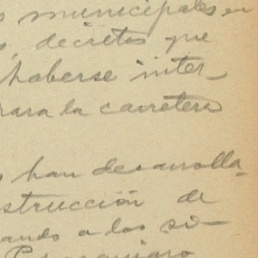 municipales en
decretos que
haberse inter-
para la carretera
han desarrolla-
strucción de
ando a los si-